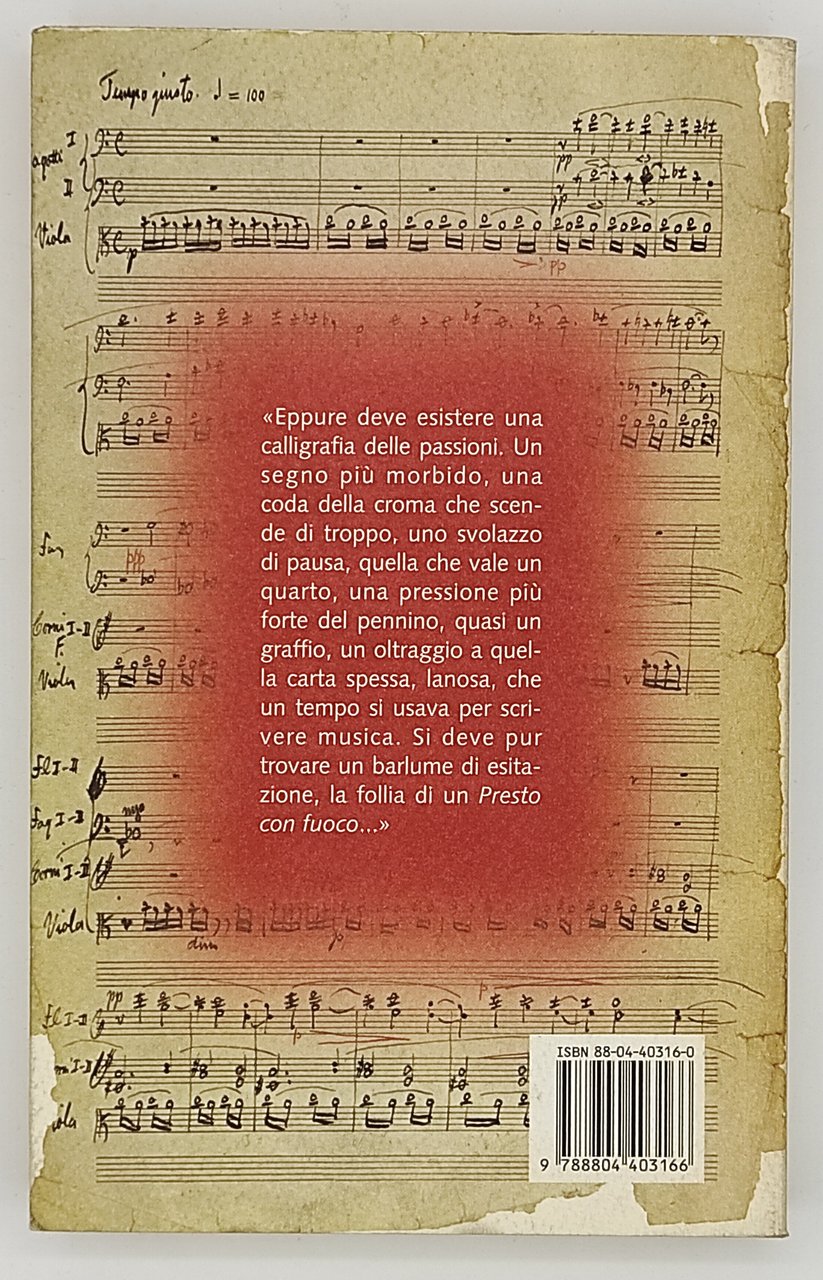 Tempo giusto. ♩ = 100
I
II
Viola
p
pp
pp
pp
«Eppure deve esistere una
calligrafia delle passioni. Un
segno più morbido, una
coda della croma che scen-
de di troppo, uno svolazzo
di pausa, quella che vale un
quarto, una pressione più
forte del pennino, quasi un
graffio, un oltraggio a quel-
la carta spessa, lanosa, che
un tempo si usava per scri-
vere musica. Si deve pur
trovare un barlume di esita-
zione, la follia di un Presto
con fuoco...»
ppp
Corni I-II
F.
Viola
Fl I-II
Fag I-II
Corni I-II
Viola
dim
p
pp
p
Fl I-II
p
I-II
ola
ISBN 88-04-40316-0
9 788804 403166